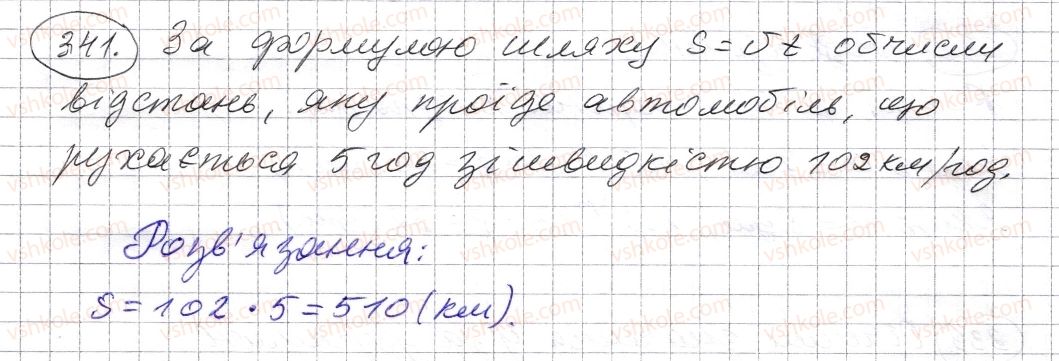 341. За формулою шляху S = vt обчисли
відстань, яку проїде автомобіль, що
рухається 5 год зі швидкістю 102 км/год.
Розв'язання:
S = 102 · 5 = 510 (км).